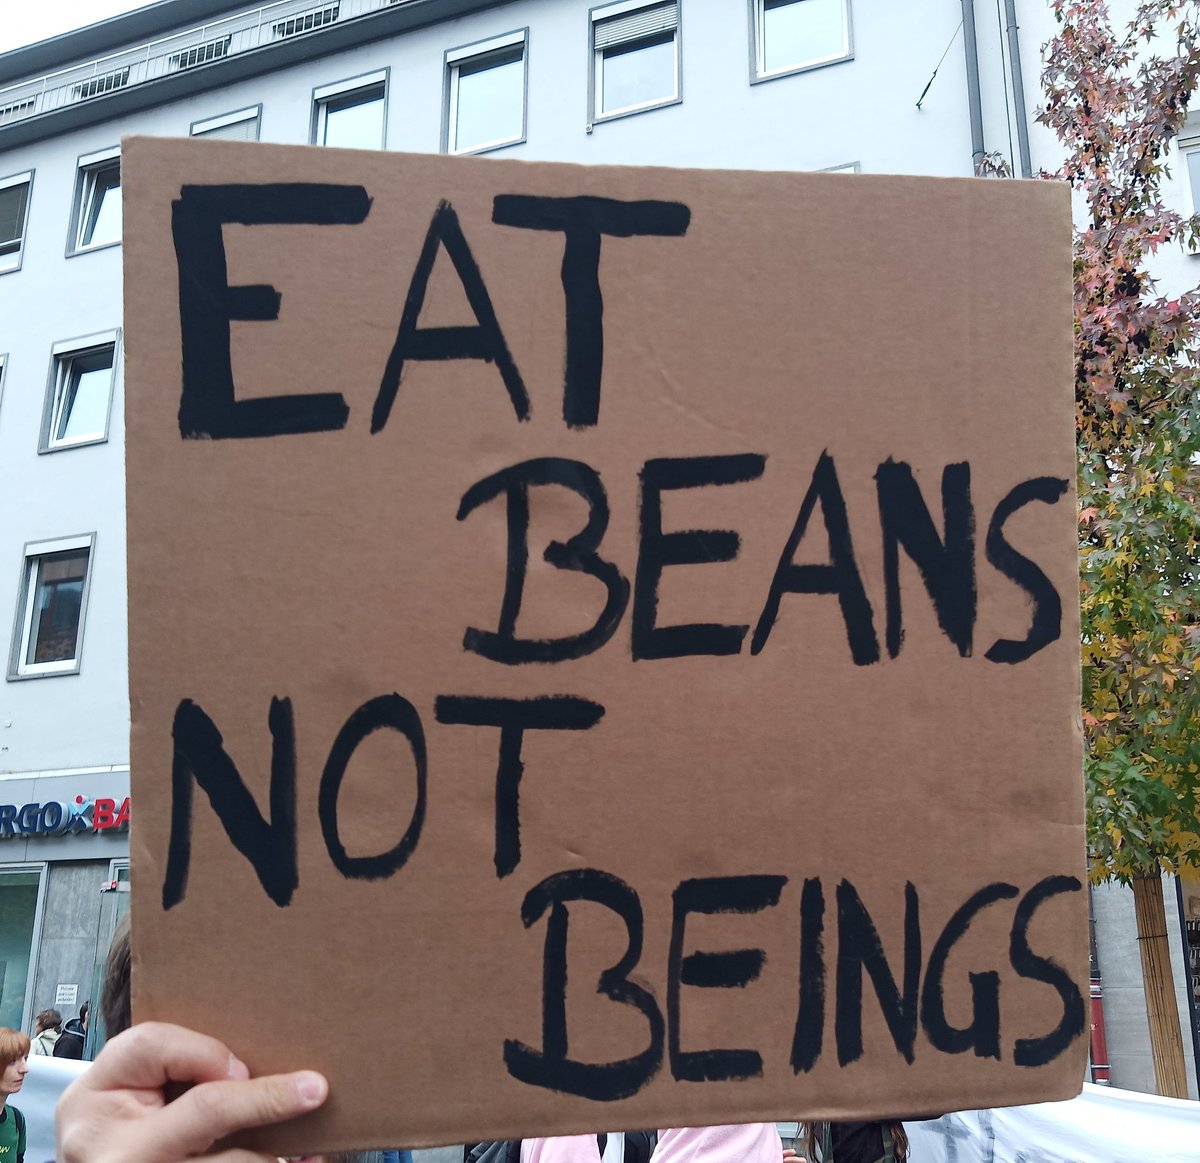 EAT
BEANS
NOT
BEINGS
RGO BA